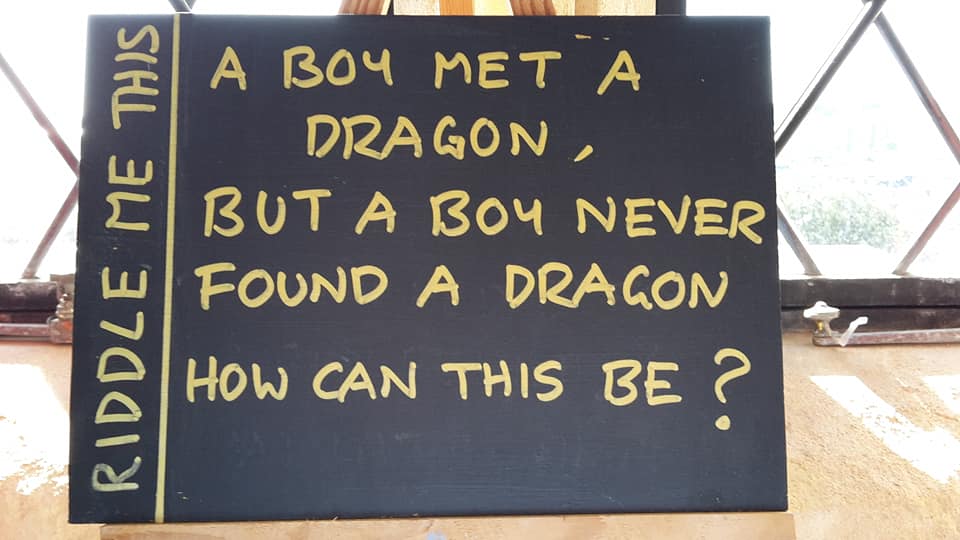 RIDDLE ME THIS
A BOY MET A
DRAGON,
BUT A BOY NEVER
FOUND A DRAGON
HOW CAN THIS BE?